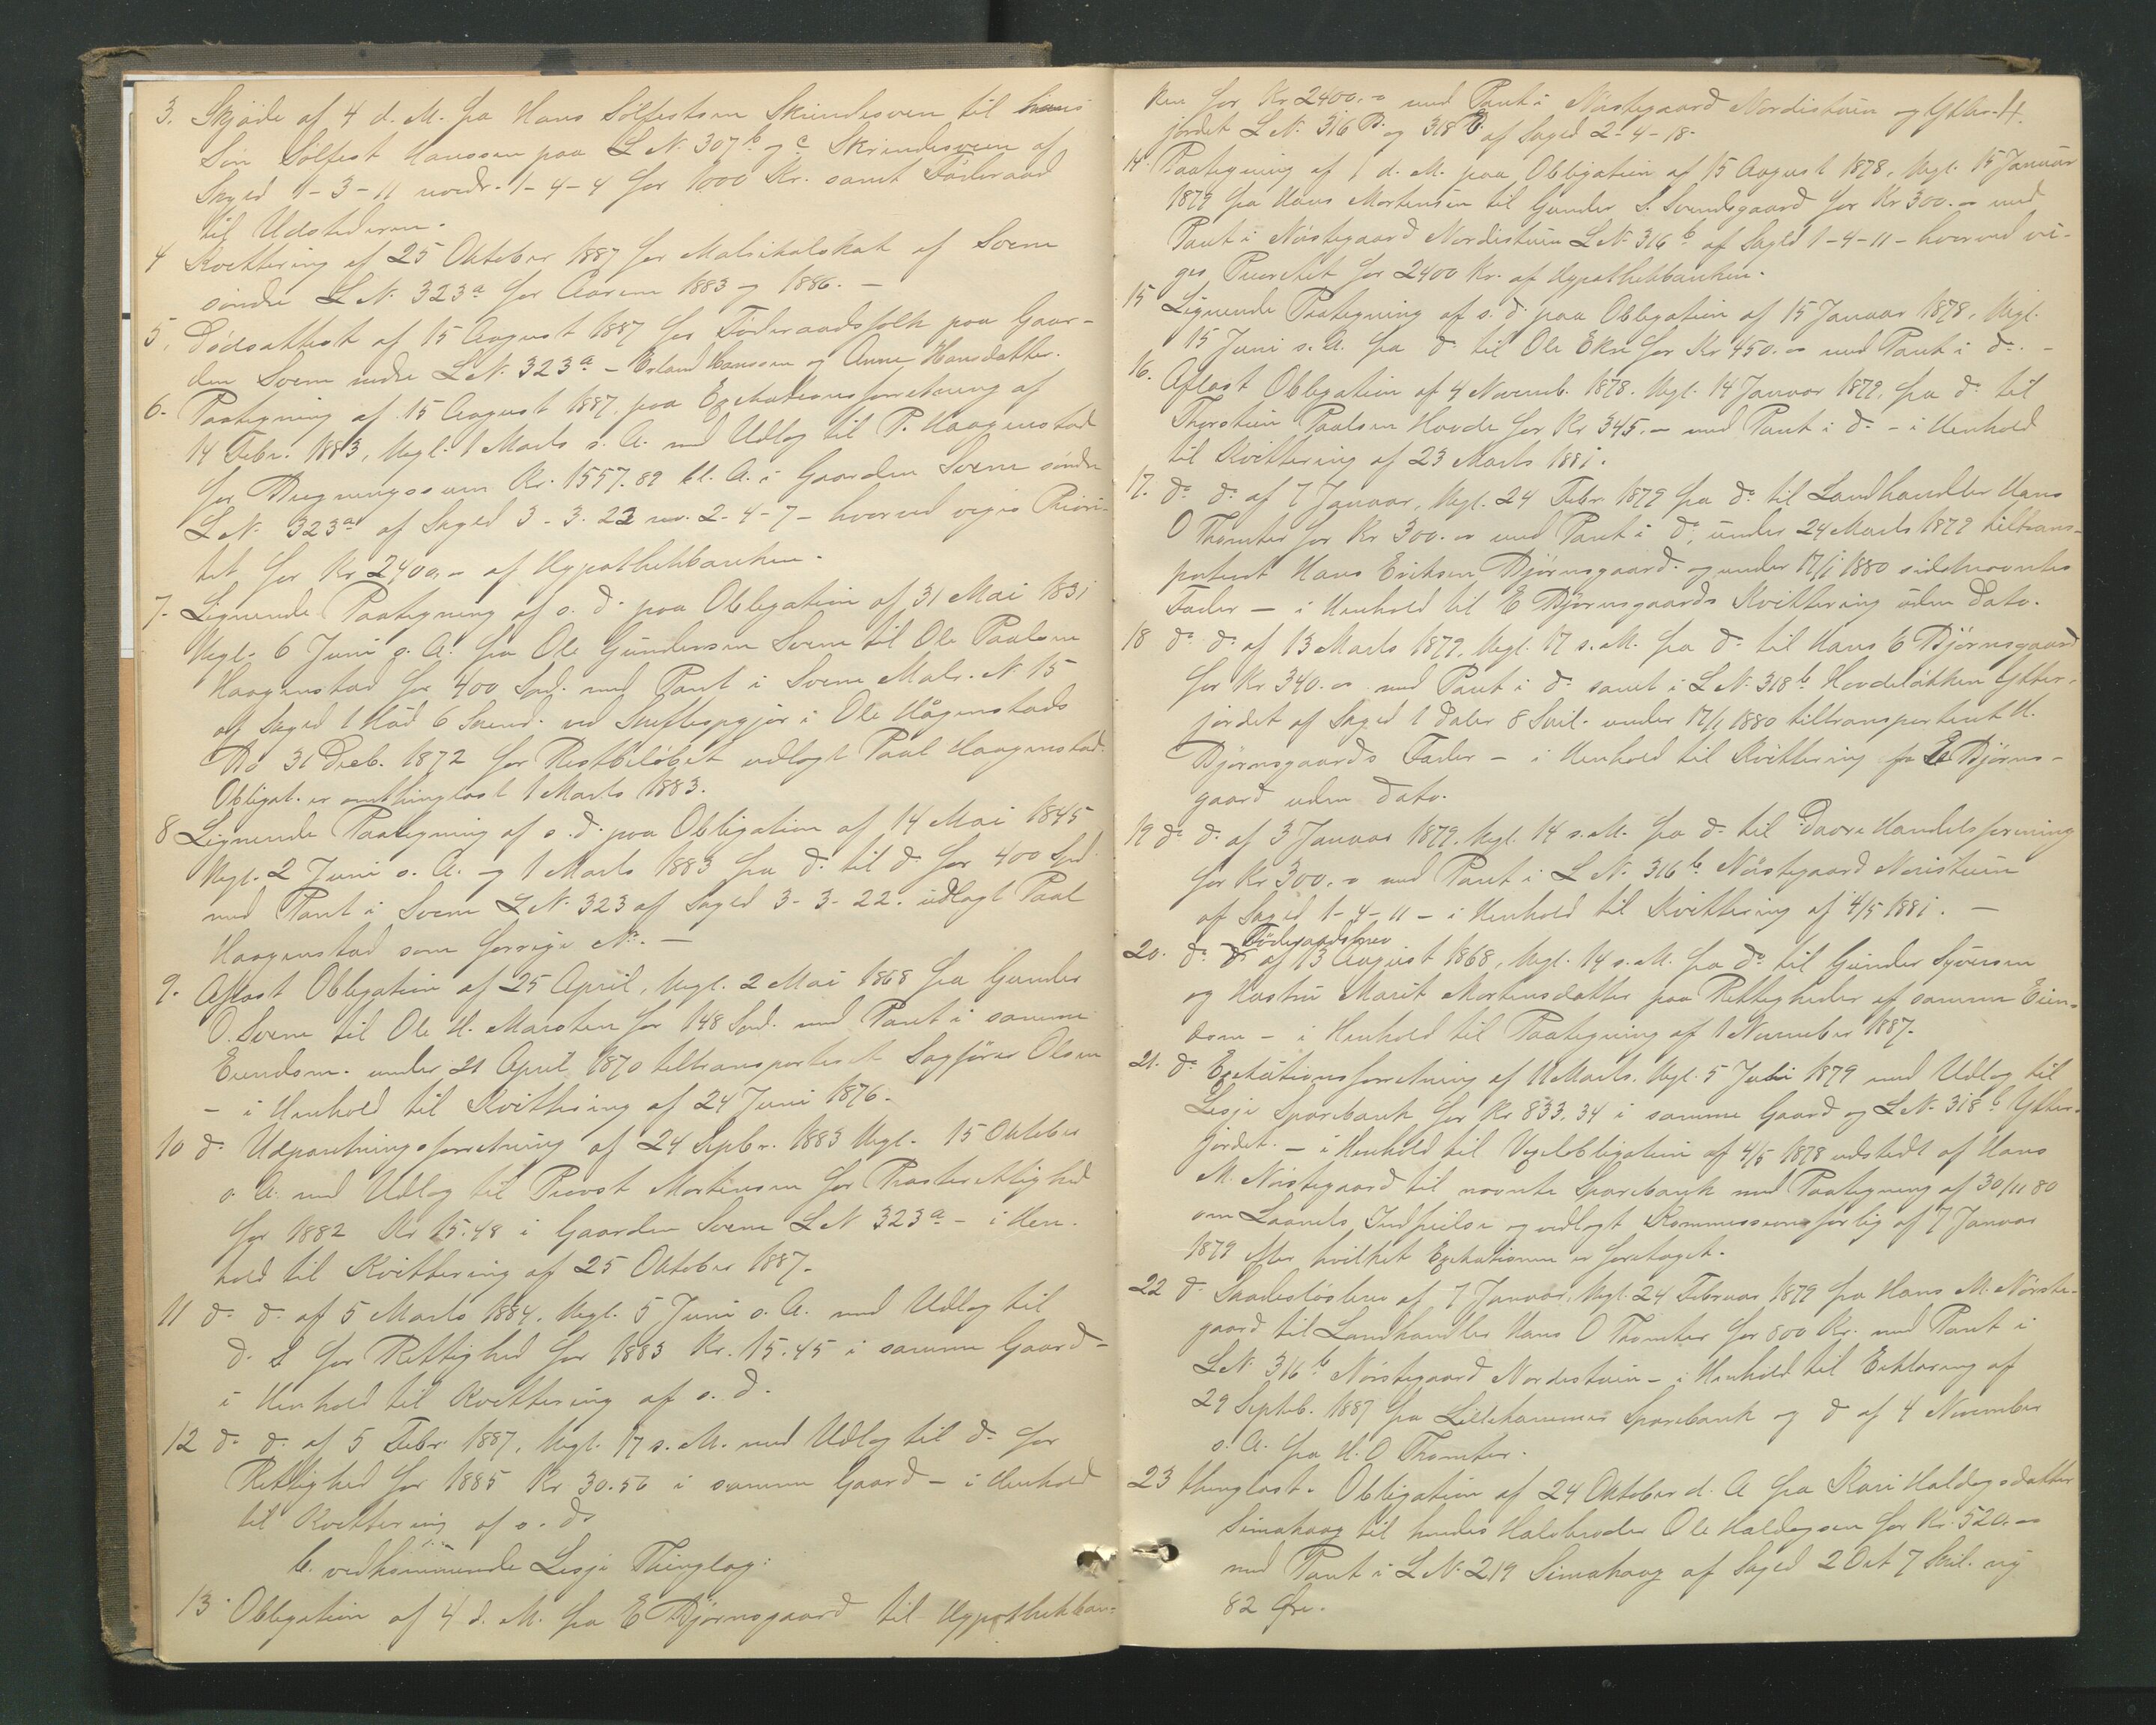 3. Skjøde af 4 d. M. fra Hans Sølfestsen Skrindesven til hans
Søn Sølfest Hanssen paa L N. 307 b. og c Skrindesveen af
Skyld 1-3-11 nedr. 1-4-4 for 1000 Kr. samt Føderaad
til Udstederen.
4 Kvittering af 25 Oktober 1887 for Matrikulskat af Sveen
søndre L N. 323 a for Aarene 1883 og 1886. -
5. Dødsattest af 15 August 1887 for Føderaadsfolk paa Gaar-
den Sveen nedre L N. 323 a - Erland Hanssen og Anne Hansdatter.
6. Paategning af 15 August 1887 paa Exekutionsforretning af
14 Febr. 1883, thgl. 1 Marts s. A. med Udlæg til P. Haagenstad
for Bregningssum Kr. 1557.82 tl. A. i Gaarden Sveen søndre
L N. 323 a af Skyld 3-3-22 nu. 2-4-7 - hvorved viges Priori-
tet for Kr 2400.- af Hypothekbanken.
7. Lignende Paategning af s. d. paa Obligation af 31 Mai 1831
thgl. 6 Juni s. A. fra Ole Gundersen Sveen til Ole Paalsen
Haagenstad for 400 Spd. med Pant i Sveen Matr. N 15
af Skyld 1 Hud 6 Skind. ved Skiftespgjør i Ole Hågenstads
Bo 31 Decb. 1872 for Restbeløbet udlagt Paal Haagenstad.
Obligat. er omthinglæst 1 Marts 1883.
8 Lignende Paategning af s. d. paa Obligation af 14 Mai 1845
thgl. 2 Juni s. A. og 1 Marts 1883 fra do. til do. for 400 Spd.
med Pant i Sveen L N. 323 af Skyld 3-3-22. udlagt Paal
Haagenstad som forrige No. -
9. Aflæst Obligation af 25 April, thgl. 2 Mai 1868 fra Gunder
O. Sveen til Ole H. Marsten for 148 Spd. med Pant i samme
Eiendom. under 21 April 1870 tiltransporteret Sagfører Olsen
- i Henhold til Kvittering af 24 Juni 1876.
10 do. Udpantningsforretning af 24 Septbr. 1883 thgl. 15 Oktober
s. A. med Udlæg til Provst Mortensen for Presterettighed
for 1882 Kr 15.48 i Gaarden Sveen L N 323 a - i Hen-
hold til Kvittering af 25 Oktober 1887.
11 do. do. af 5 Marts 1884, thgl. 5 Juni s. A. med Udlæg til
do. for Rettighed for 1883 Kr. 15.45 i samme Gaard -
i Henhold til Kvittering af s. d.
12 do. do. af 5 Febr. 1887, thgl. 17 s. M. med Udlæg til do. for
Rettighed for 1885 Kr 30.56 i samme Gaard - i Henhold
til Kvittering af s. d.
b. vedkommende Lesje Thinglag:
13. Obligation af 4 d. M. fra E Bjørnsgaard til Hypothekban-
ken for Kr 2400.- med Pant i Nørstegaard Nordistuen og Ytter-
jordet L N. 316 B. og 318 B. af Skyld 2-4-18.
14. Paategning af 1 d. M. paa Obligation af 15 August 1878, thgl. 15 Januar
1879 fra Hans Mortensen til Gunder S. Svendsgaard for Kr 300.- med
Pant i Nørstegaard Nordistuen L N. 316 b af Skyld 1-4-11 - hvorved vi-
ges Prioritet for 2400 Kr. af Hypothekbanken.
15 Lignende Paategning af s. d. paa Obligation af 15 Januar 1878, thgl.
15 Juni s. A. fra do. til Ole Ekre for Kr 450.- med Pant i do. -
16. Aflæst Obligation af 4 Novemb. 1878. thgl. 14 Januar 1879, fra do. til
Thorstein Paalsen Hovde for Kr 345.- med Pant i do. - i Henhold
til Kvittering af 23 Marts 1881.
17. do. do. af 7 Januar, thgl. 24 Febr. 1879 fra do. til Landhandler Hans
O Thomter for Kr 300.- med Pant i do, under 24 Marts 1879 tiltrans-
porteret Hans Eriksen Bjørnsgaard. og under 17/1 1880 sidstnævntes
Fader - i Henhold til E Bjørnsgaards Kvittering uden Dato.
18 do. do. af 13 Marts 1879, thgl. 17 s. M. fra do. til Hans E Bjørnsgaard
for Kr 340.- med Pant i do. samt i L N. 318 b. Hovdeløkken Ytter-
jordet af Skyld 1 Daler 8 Skil. under 17/1 1880 tiltransporteret H.
Bjørnsgaards Fader - i Henhold til Kvittering fra E Bjørns-
gaard uden Dato.
19 do. do. af 3 Januar 1879. thgl. 14 s. M. fra do. til Dovre Handelsforening
for Kr 300.- med Pant i L N. 316 b. Nørstegaard Noristuen
af Skyld 1-4-11 - i Henhold til Kvittering af 4/5 1881. -
Føderaadsbrev
20. do. do. af 13 August 1868, thgl. 14 s. M. fra do. til Gunder Syversen
og Hustru Marit Mortensdatter paa Rettigheder af samme Eien-
dom - i Henhold til Paategning af 1 November 1887.
21. do. Exekutionsforretning af 11 Marts. thgl. 5 Juli 1879 med Udlæg til
Lesje Sparebank for Kr 833.34 i samme Gaard og L N. 318 b Ytter-
jordet. - i Henhold til Vexelobligation af 4/5 1878 udstedt af Hans
M. Nørstegaard til nævnte Sparebank med Paategning af 30/11 80
om Laanets Indfrielse og vedlagt Kommissionsforlig af 7 Januar
1879 efter hvilket Exekutionen er foretaget.
22 do. Skadesløsbrev af 7 Januar, thgl. 24 Februar 1879 fra Hans M. Nørste-
gaard til Landhandler Hans O Thomter for 800 Kr. med Pant i
L N. 316 b Nørstegaard Nordistuen - i Henhold til Erklæring af
29 Septeb. 1887 fra Lillehammer Sparebank og do af 4 November
s. A. fra H. O Thomter.
23 Thinglæst. Obligation af 24 Oktober d. A fra Kari Haldogsdatter
Simahaag til hendes Halvbroder Ole Haldogsen for Kr. 520.-
med Pant i L N. 219 Simahaag af Skyld 2 Ort 7 Skil. ny
82 Øre.